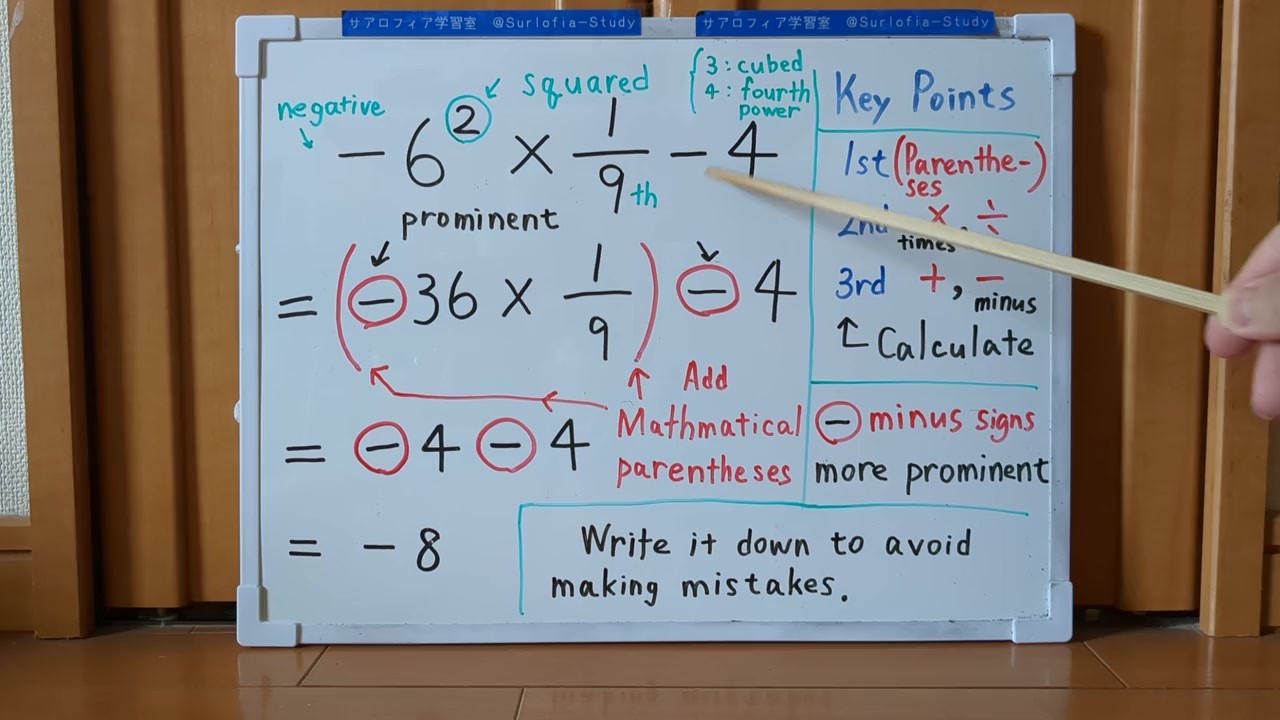 サアロフィア学習室 @Surlofia-Study
サアロフィア学習室 @Surlofia-Study
negative
squared
3 : cubed
4 : fourth
power
−6² × 1/9 − 4
th
prominent
= (−36 × 1/9) − 4
Add
Mathmatical
parentheses
= −4 −4
= −8
Key Points
1st (Parenthe-)
ses
2nd ×, ÷
times
3rd +, −
minus
Calculate
− minus signs
more prominent
Write it down to avoid
making mistakes.